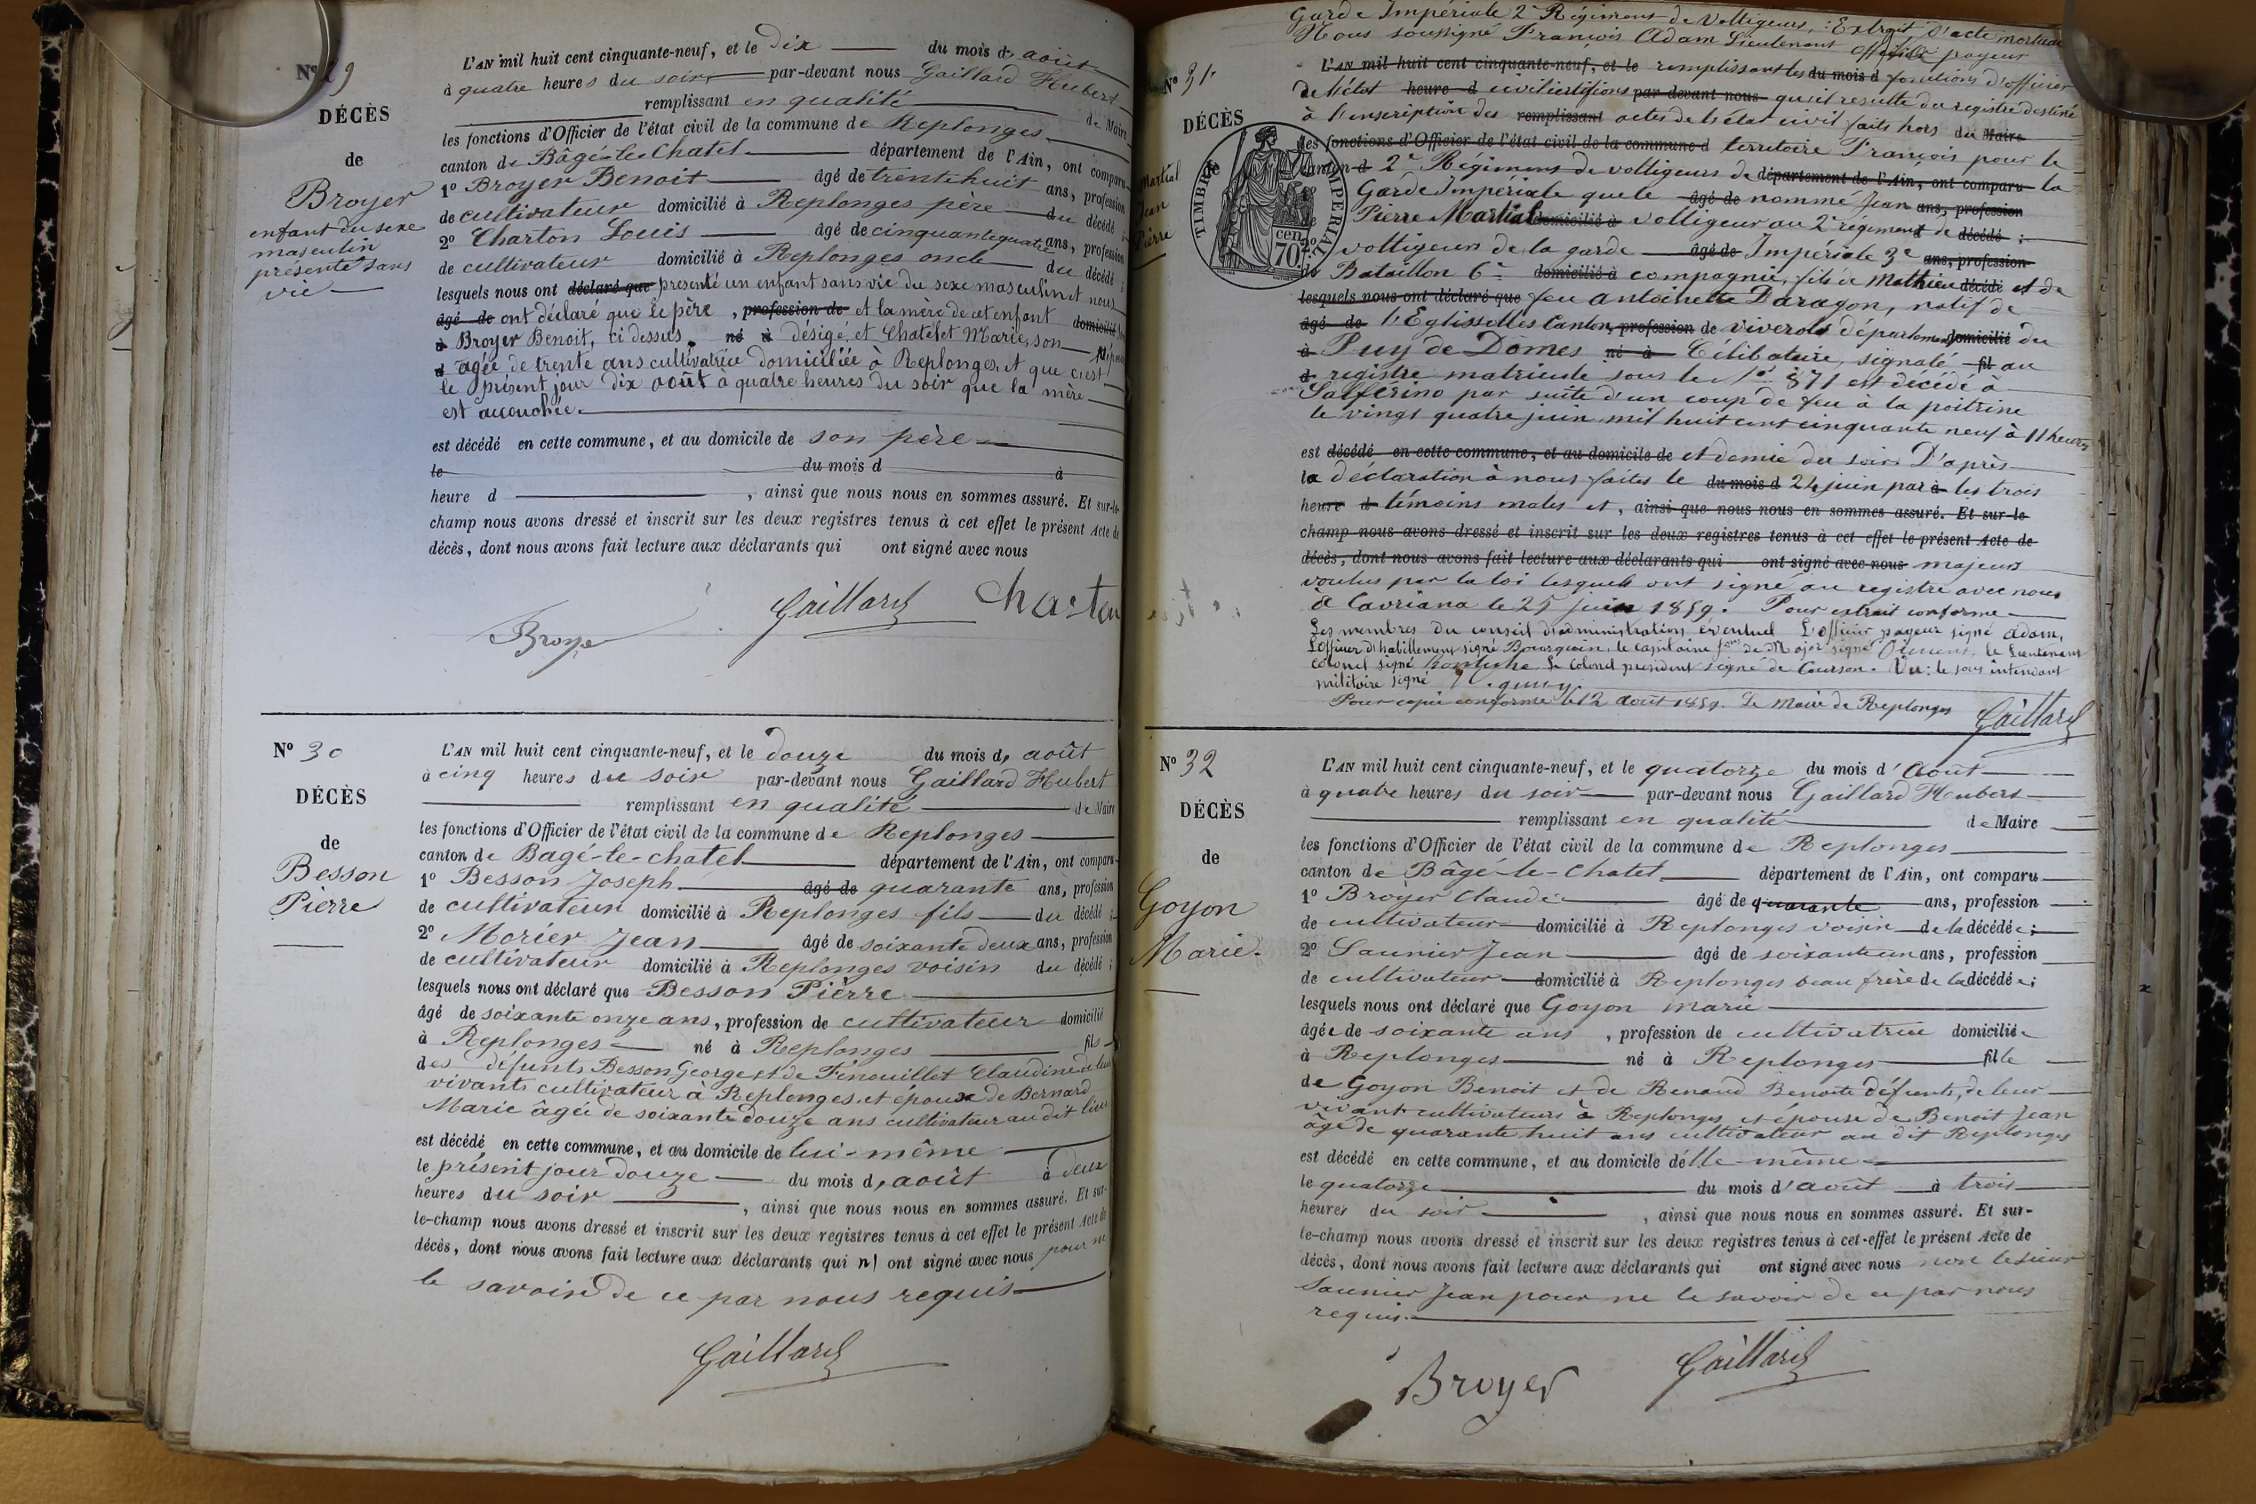 N° 29
DÉCÈS
de
Broyer
enfant du sexe
masculin
présenté sans
vie
L'AN mil huit cent cinquante-neuf, et le dix du mois d'août
à quatre heures du soir par-devant nous Gaillard Hubert
remplissant en qualité de Maire
les fonctions d'Officier de l'état civil de la commune de Replonges
canton de Bâgé-le-Chatel département de l'Ain, ont comparu
1° Broyer Benoit âgé de trente huit ans, profession
de cultivateur domicilié à Replonges père du décédé ;
2° Charton Louis âgé de cinquante quatre ans, profession
de cultivateur domicilié à Replonges oncle du décédé ;
lesquels nous ont déclaré que présenté un enfant sans vie du sexe masculin et nous
âgé de ont déclaré que le père , profession de et la mère de cet enfant domicilié
à Broyer Benoit, ci dessus né à désigé, et Chatelet Marie, son
d agée de trente ans cultivatrice domiciliée à Replonges, et que c'est
le présent jour dix août à quatre heures du soir que la mère
est accouchée.
est décédé en cette commune, et au domicile de son père
le du mois d à
heure d , ainsi que nous nous en sommes assuré. Et sur-le-
champ nous avons dressé et inscrit sur les deux registres tenus à cet effet le présent Acte de
décès, dont nous avons fait lecture aux déclarants qui ont signé avec nous
Broye Gaillard Charton
N° 30
DÉCÈS
de
Besson
Pierre
L'AN mil huit cent cinquante-neuf, et le douze du mois d'août
à cinq heures du soir par-devant nous Gaillard Hubert
remplissant en qualité de Maire
les fonctions d'Officier de l'état civil de la commune de Replonges
canton de Bagé-le-chatel département de l'Ain, ont comparu
1° Besson Joseph âgé de quarante ans, profession
de cultivateur domicilié à Replonges fils du décédé ;
2° Morier Jean âgé de soixante deux ans, profession
de cultivateur domicilié à Replonges voisin du décédé ;
lesquels nous ont déclaré que Besson Pierre
âgé de soixante onze ans, profession de cultivateur domicilié
à Replonges né à Replonges fils
des défunts Besson George et de Fenouillet Claudine de leur
vivants cultivateur à Replonges et époux de Bernard
Marie âgée de soixante douze ans cultivateur au dit lieu
est décédé en cette commune, et au domicile de lui-même
le présent jour douze du mois d'août à deux
heures du soir , ainsi que nous nous en sommes assuré. Et sur-
le-champ nous avons dressé et inscrit sur les deux registres tenus à cet effet le présent Acte de
décès, dont nous avons fait lecture aux déclarants qui n' ont signé avec nous pour ne
le savoir de ce par nous requis
Gaillard
Garde Impériale 2e Régiment de Voltigeurs, Extrait d'acte mortuaire
Nous soussigné François Adam Lieutenant officier payeur
N° 31
DÉCÈS
de
Martial
Jean
Pierre
TIMBRE IMPÉRIAL
70 cen
L'AN mil huit cent cinquante-neuf, et le remplissant les du mois d fonctions d'officier
de l'état heure d civil certifions par-devant nous qu'il resulte du registre destiné
à l'inscription des remplissant actes de l'état civil faits hors du Maire
les fonctions d'Officier de l'état civil de la commune d territoire François pour le
canton d 2e Régiment de voltigeurs de département de l'Ain, ont comparu la
Garde Impériale que le âgé de nommé Jean ans, profession
Pierre Martial domicilié à voltigeur au 2e régiment de décédé ;
2° voltigeurs de la garde âgé de Impériale 3e ans, profession
de Bataillon 6e domicilié à compagnie, fils de Mathieu décédé et de
lesquels nous ont déclaré que feu antoinette Daragon, natif de
âgé de l'Eglisolles Canton, profession de viverols département domicilié du
à Puy de Domes né à Célibataire, signalé fil au
d registre matricule sous le N° 571 est décédé à
Salférino par suite d'un coup de feu à la poitrine
le vingt quatre juin mil huit cent cinquante neuf à 11 heures
est décédé en cette commune, et au domicile de et demie du soir D'après
la déclaration à nous faites le du mois d 24 juin par à les trois
heure d témoins males et , ainsi que nous nous en sommes assuré. Et sur-le
champ nous avons dressé et inscrit sur les deux registres tenus à cet effet le présent Acte de
décès, dont nous avons fait lecture aux déclarants qui ont signé avec nous majeurs
voulus par la loi lesquels ont signé au registre avec nous
à Cavriana le 25 juin 1859. Pour extrait conforme
Les membres du conseil d'administration éventuel L'officier payeur signé Adam,
L'officier d'habillement signé Bourguin, le capitaine fons de Major signé Clement, le Lieutenant
Colonel signé Le Colonel president signé de Courson. Vu: le sous intendant
militoire signé
Pour copie conforme le 12 août 1859. Le Maire de Replonges
Gaillard
N° 32
DÉCÈS
de
Goyon
Marie.
L'AN mil huit cent cinquante-neuf, et le quatorze du mois d'août
à quatre heures du soir par-devant nous Gaillard Hubert
remplissant en qualité de Maire
les fonctions d'Officier de l'état civil de la commune de Replonges
canton de Bâgé-le-Chatel département de l'Ain, ont comparu
1° Broyer Claude âgé de quarante ans, profession
de cultivateur domicilié à Replonges voisin de la décédée ;
2° Saunier Jean âgé de soixante un ans, profession
de cultivateur domicilié à Replonges beau frère de la décédée ;
lesquels nous ont déclaré que Goyon marie
âgée de soixante ans , profession de cultivatrice domiciliée
à Replonges né à Replonges fille
de Goyon Benoit et de Renaud Benoite défunts, de leur
vivant cultivateurs à Replonges et épouse de Benoit Jean
âgé de quarante huit ans cultivateur au dit Replonges
est décédé en cette commune, et au domicile d'elle même
le quatorze du mois d'août à trois
heures du soir , ainsi que nous nous en sommes assuré. Et sur-
le-champ nous avons dressé et inscrit sur les deux registres tenus à cet effet le présent Acte de
décès, dont nous avons fait lecture aux déclarants qui ont signé avec nous non le sieur
Saunier Jean pour ne le savoir de ce par nous
requis.
Broyer Gaillard